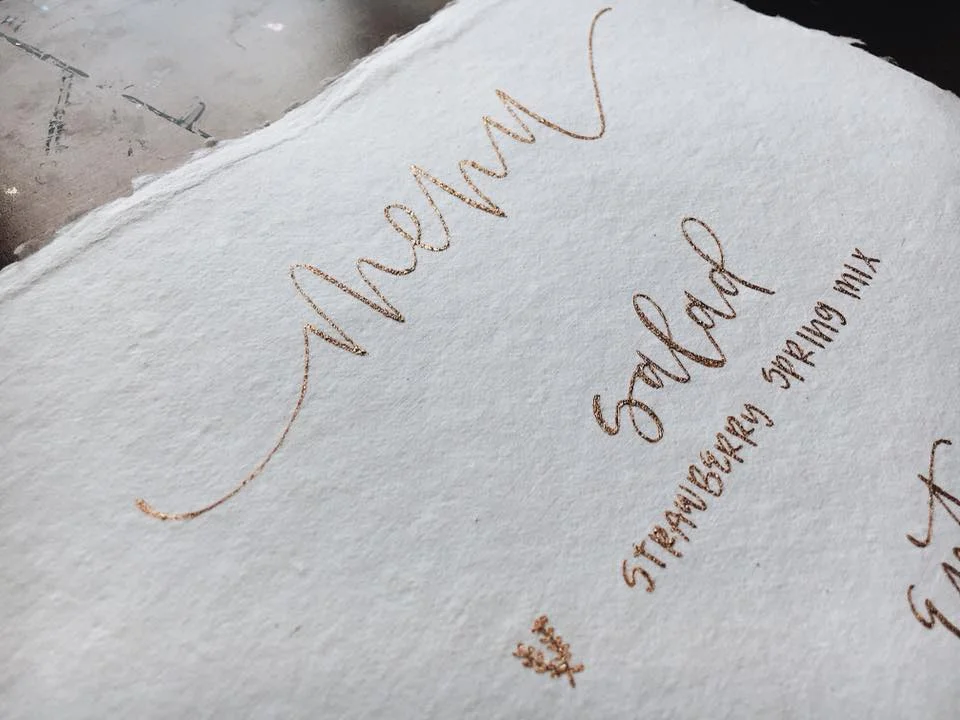 menu
Salad
STRAWBERRY SPRING MIX